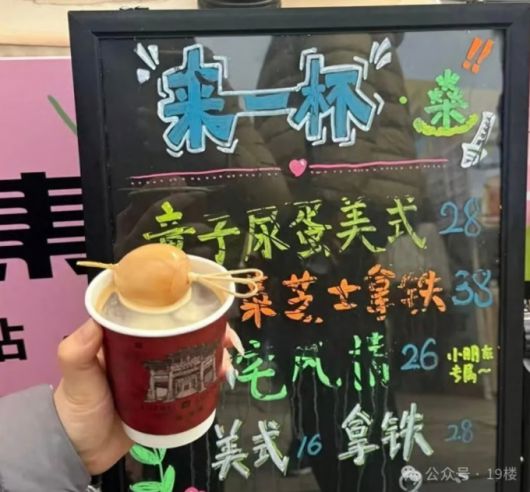 来一杯·桑!!
童子尿蛋美式 28
菜芝士拿铁 38
宅风情 26 小朋友专属~
美式 16 拿铁 28
集
站
公众号·19楼